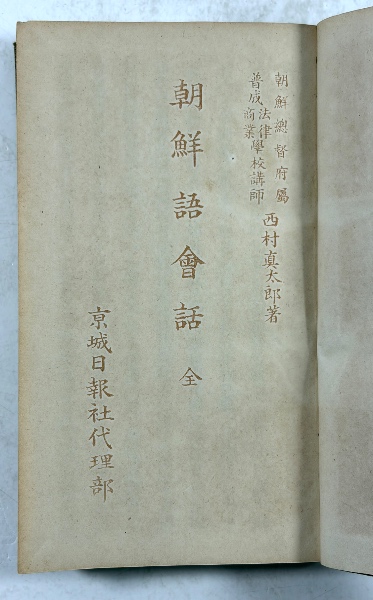 朝鮮總督府屬
普成法律商業學校講師
西村真太郎著
朝鮮語會話 全
京城日報社代理部